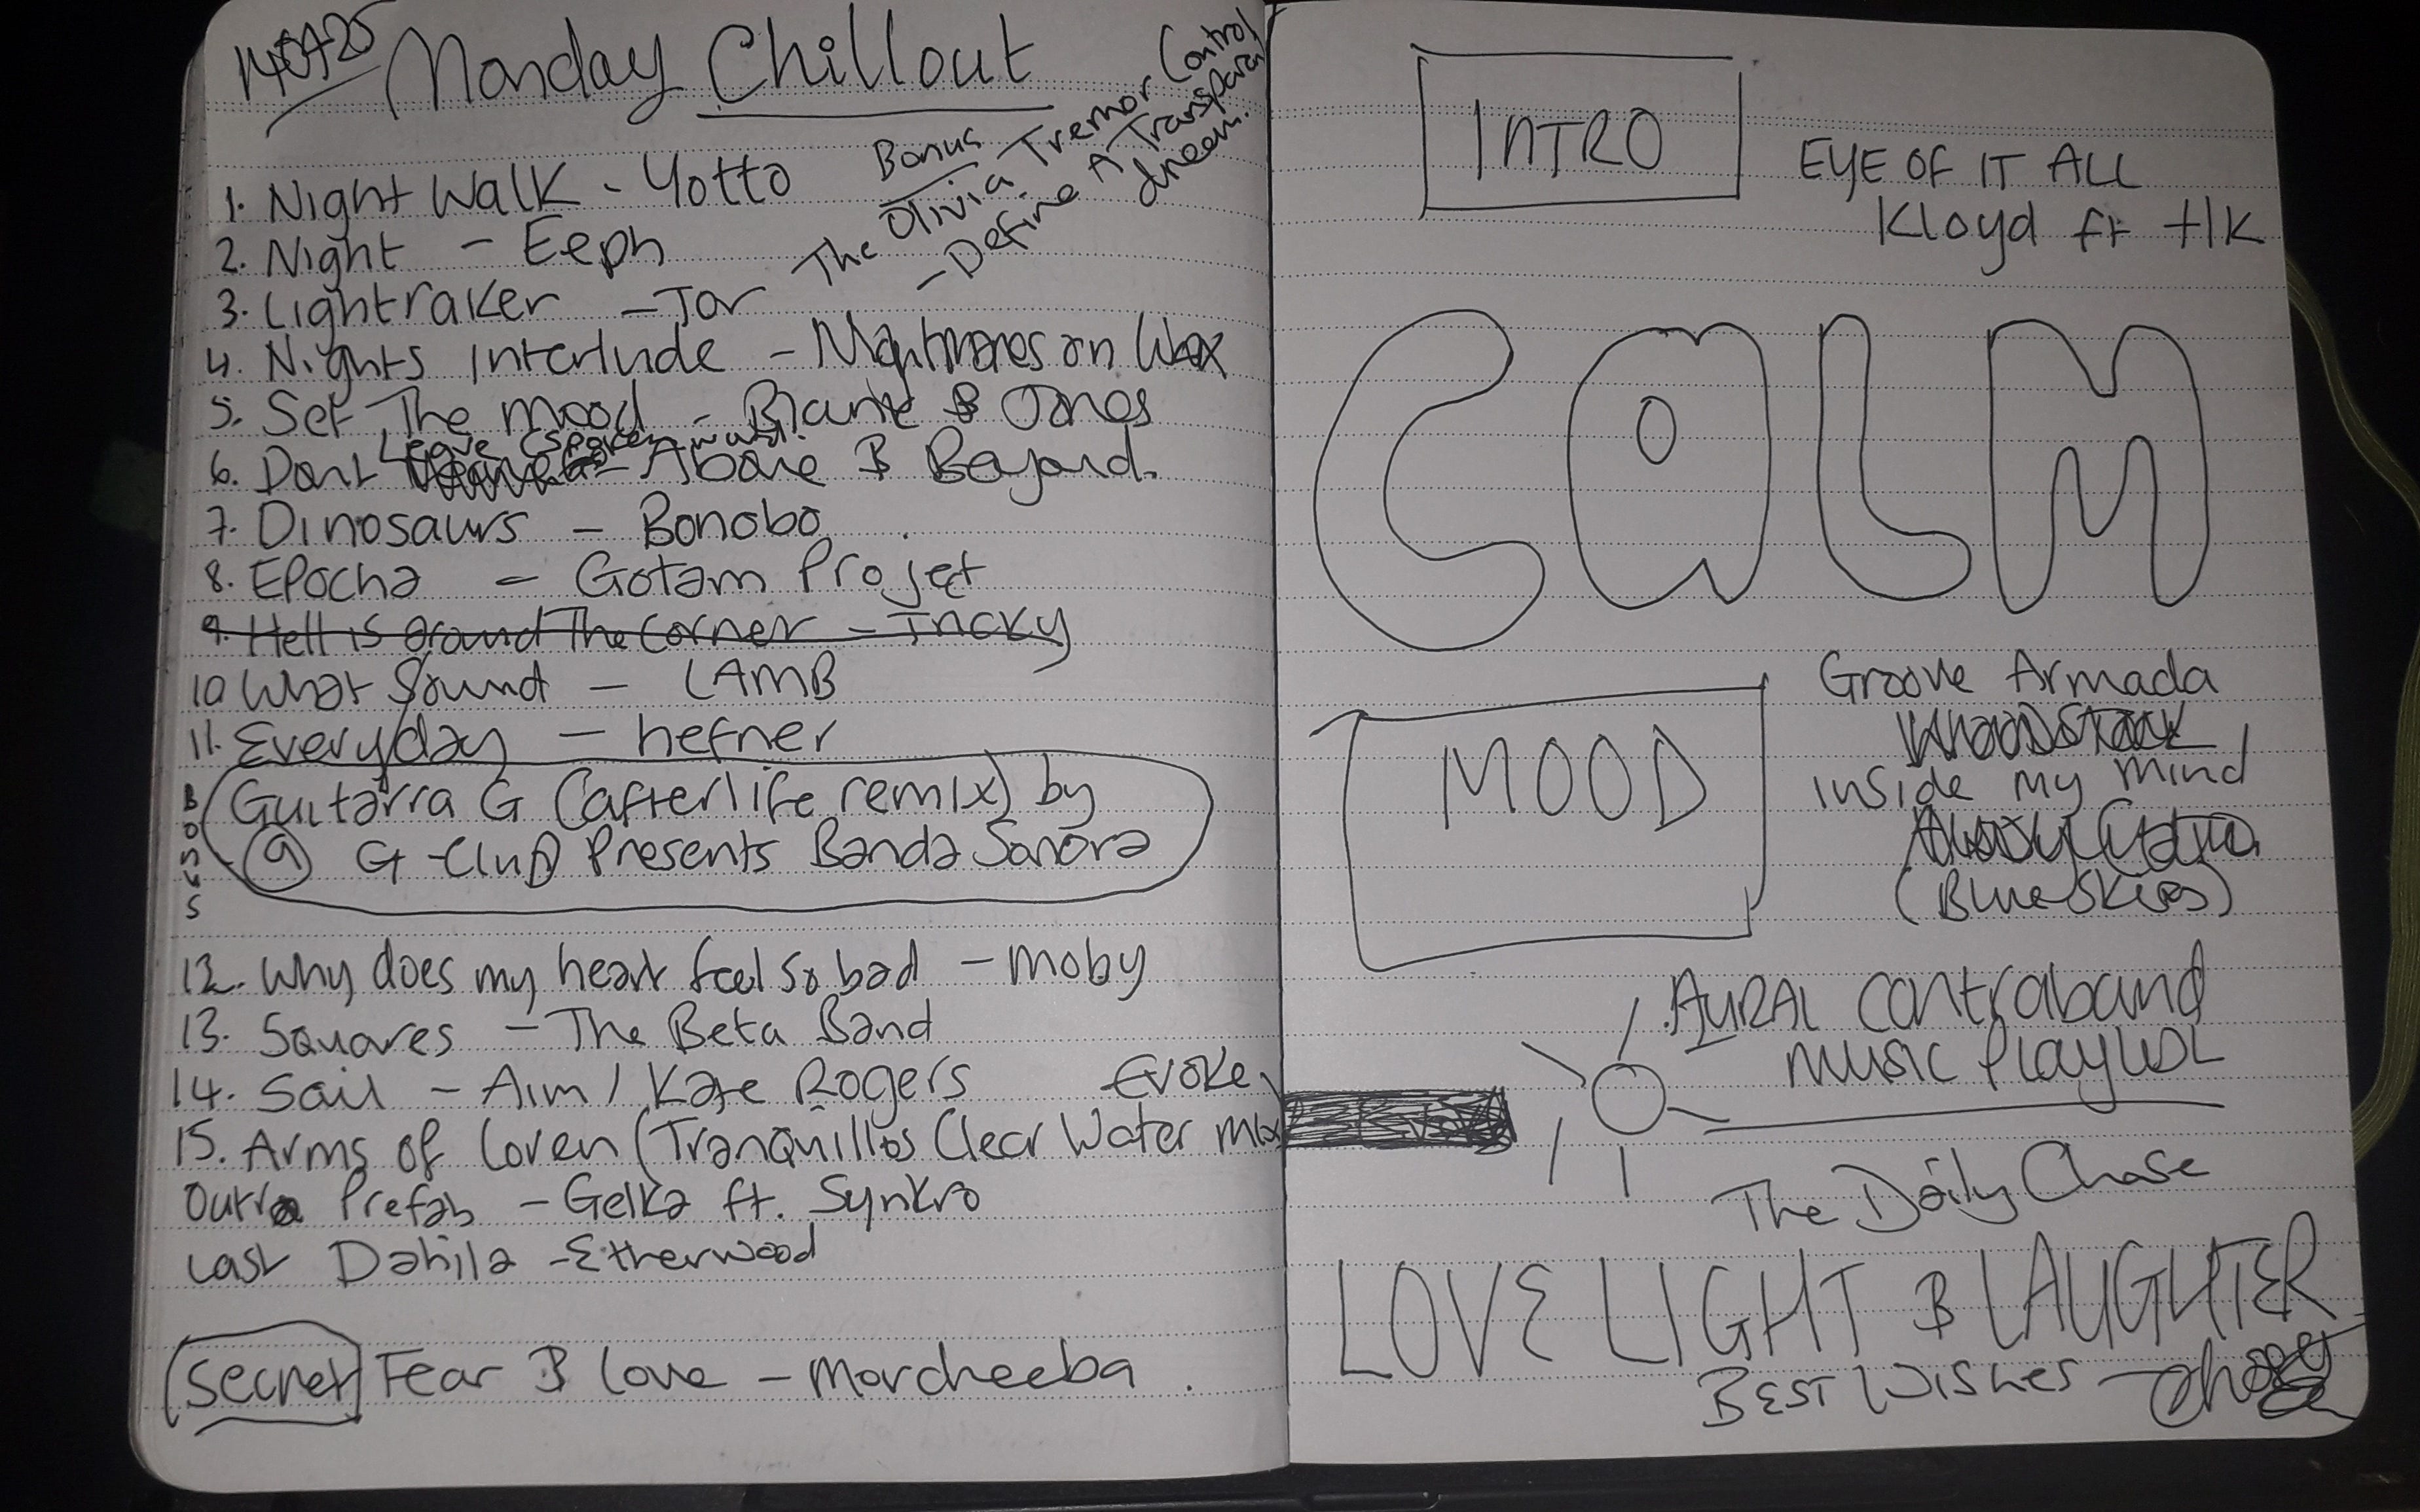 140725 Monday Chillout
Bonus
The Olivia Tremor Control
- Define A Transparent
dream.
1. Night Walk - Yotto
2. Night - Eeph
3. Lightraker - Jar
4. Nights Interlude - Nightmares on Wax
5. Set The mood - Blank & Jones
Leave (spoken word)
6. Dont - Above & Beyond.
7. Dinosaurs - Bonobo
8. Epocha - Gotam Project
9. Hell is around The Corner - Tricky
10 What Sound - LAMB
11. Everyday - hefner
BONUS
Guitarra G (afterlife remix) by
9 G-Club Presents Banda Sonora
12. Why does my heart feel so bad - Moby
13. Squares - The Beta Band
14. Sail - Aim / Kate Rogers Evoke
15. Arms of Loren (Tranquillos Clear Water mix
Outro Prefab - Gelka ft. Synkro
Last Dahila - Etherwood
Secret Fear & Love - Morcheeba.
INTRO
EYE OF IT ALL
Kloyd ft tlk
CALM
MOOD
Groove Armada
inside my mind
(Blue Skies)
AURAL Contraband
Music Playlist
The Daily Chase
LOVE LIGHT & LAUGHTER
BEST WISHES -